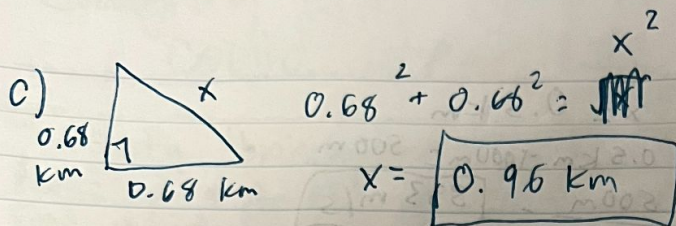 c)
x
0.68
km
0.68 km
0.68² + 0.68² = x²
x = 0.96 km